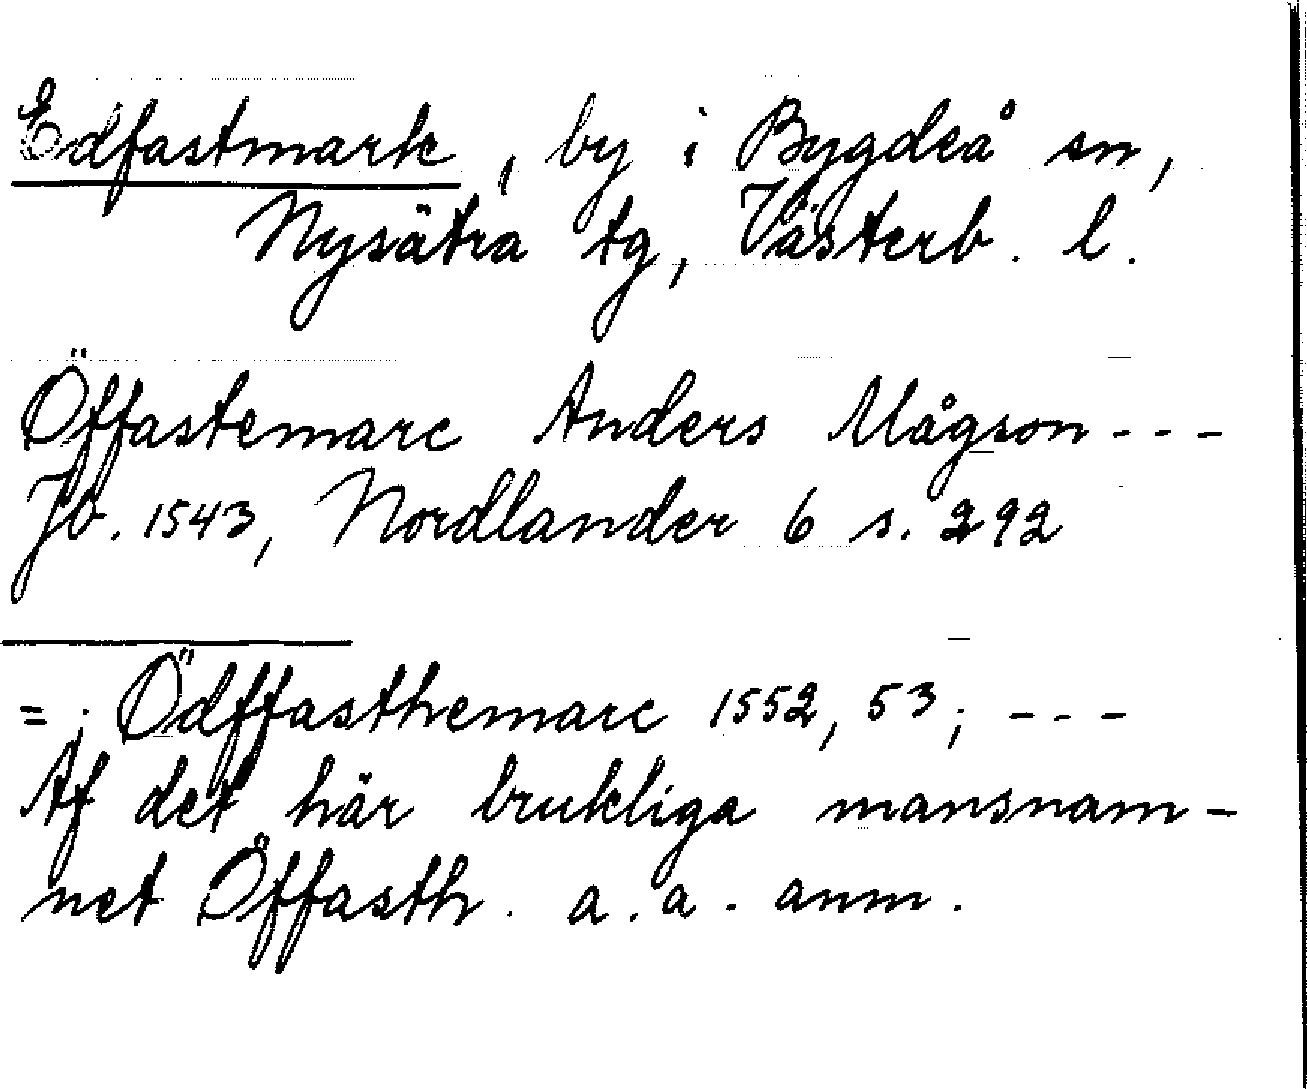 Edfastmark, by i Bygdeå sn,
Nysätra tg, Västerb. l.
Öffastemarc Anders Mågson - - -
Jb. 1543, Nordlander 6 s. 292
= ; Ödffasthemarc 1552, 53; - - -
Af det här brukliga mansnam-
net Öffasth. a. a. anm.